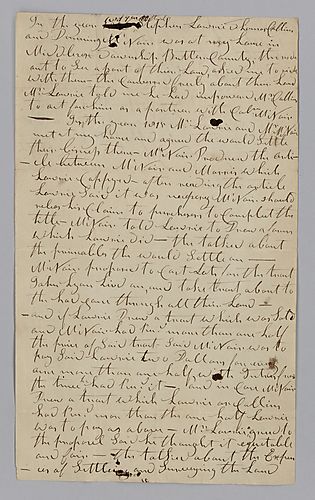 In the year Stephen Lowrie Thomas Collins
and Dunning McNair was at my house in
Middlesex Township Butler County, they went
out to See a part of their Land, asked me to ride
with them the Conversation freely about their Land
Mr Lowrie told me he had impowered Mr Collins
to act for him as a partner with Col McNair
In the year 1815 Mr Lowrie and McNair
met at my house and agreed they would Settle
their business there McNair Produced the arti-
cle between McNair and Morris which
Lowrie after reading the article
Lowrie Said it was necessary McNair should
his Claim to purchasers to Complete the
title McNair told Lowrie to Draw a form
which Lowrie did they talked about
the principles they would Settle on
McNair propose to Cast Lots for the tract
that have gone through all their Land
and if Lowrie Drew a tract which was Sold
and McNair had more than one half
the price of Said tract Said McNair was to
pay Said Lowrie two Dollars for
acre more than one half with Interest from
the time he had it, and in Case McNair
Drew a tract which Lowrie or Collins
had more than the one half Lowrie
was to pay as above Mr Lowrie agreed to
the proposal Said he thought it equitable
and fair they talked about the Expen-
ces of Settling and Surveying the Land